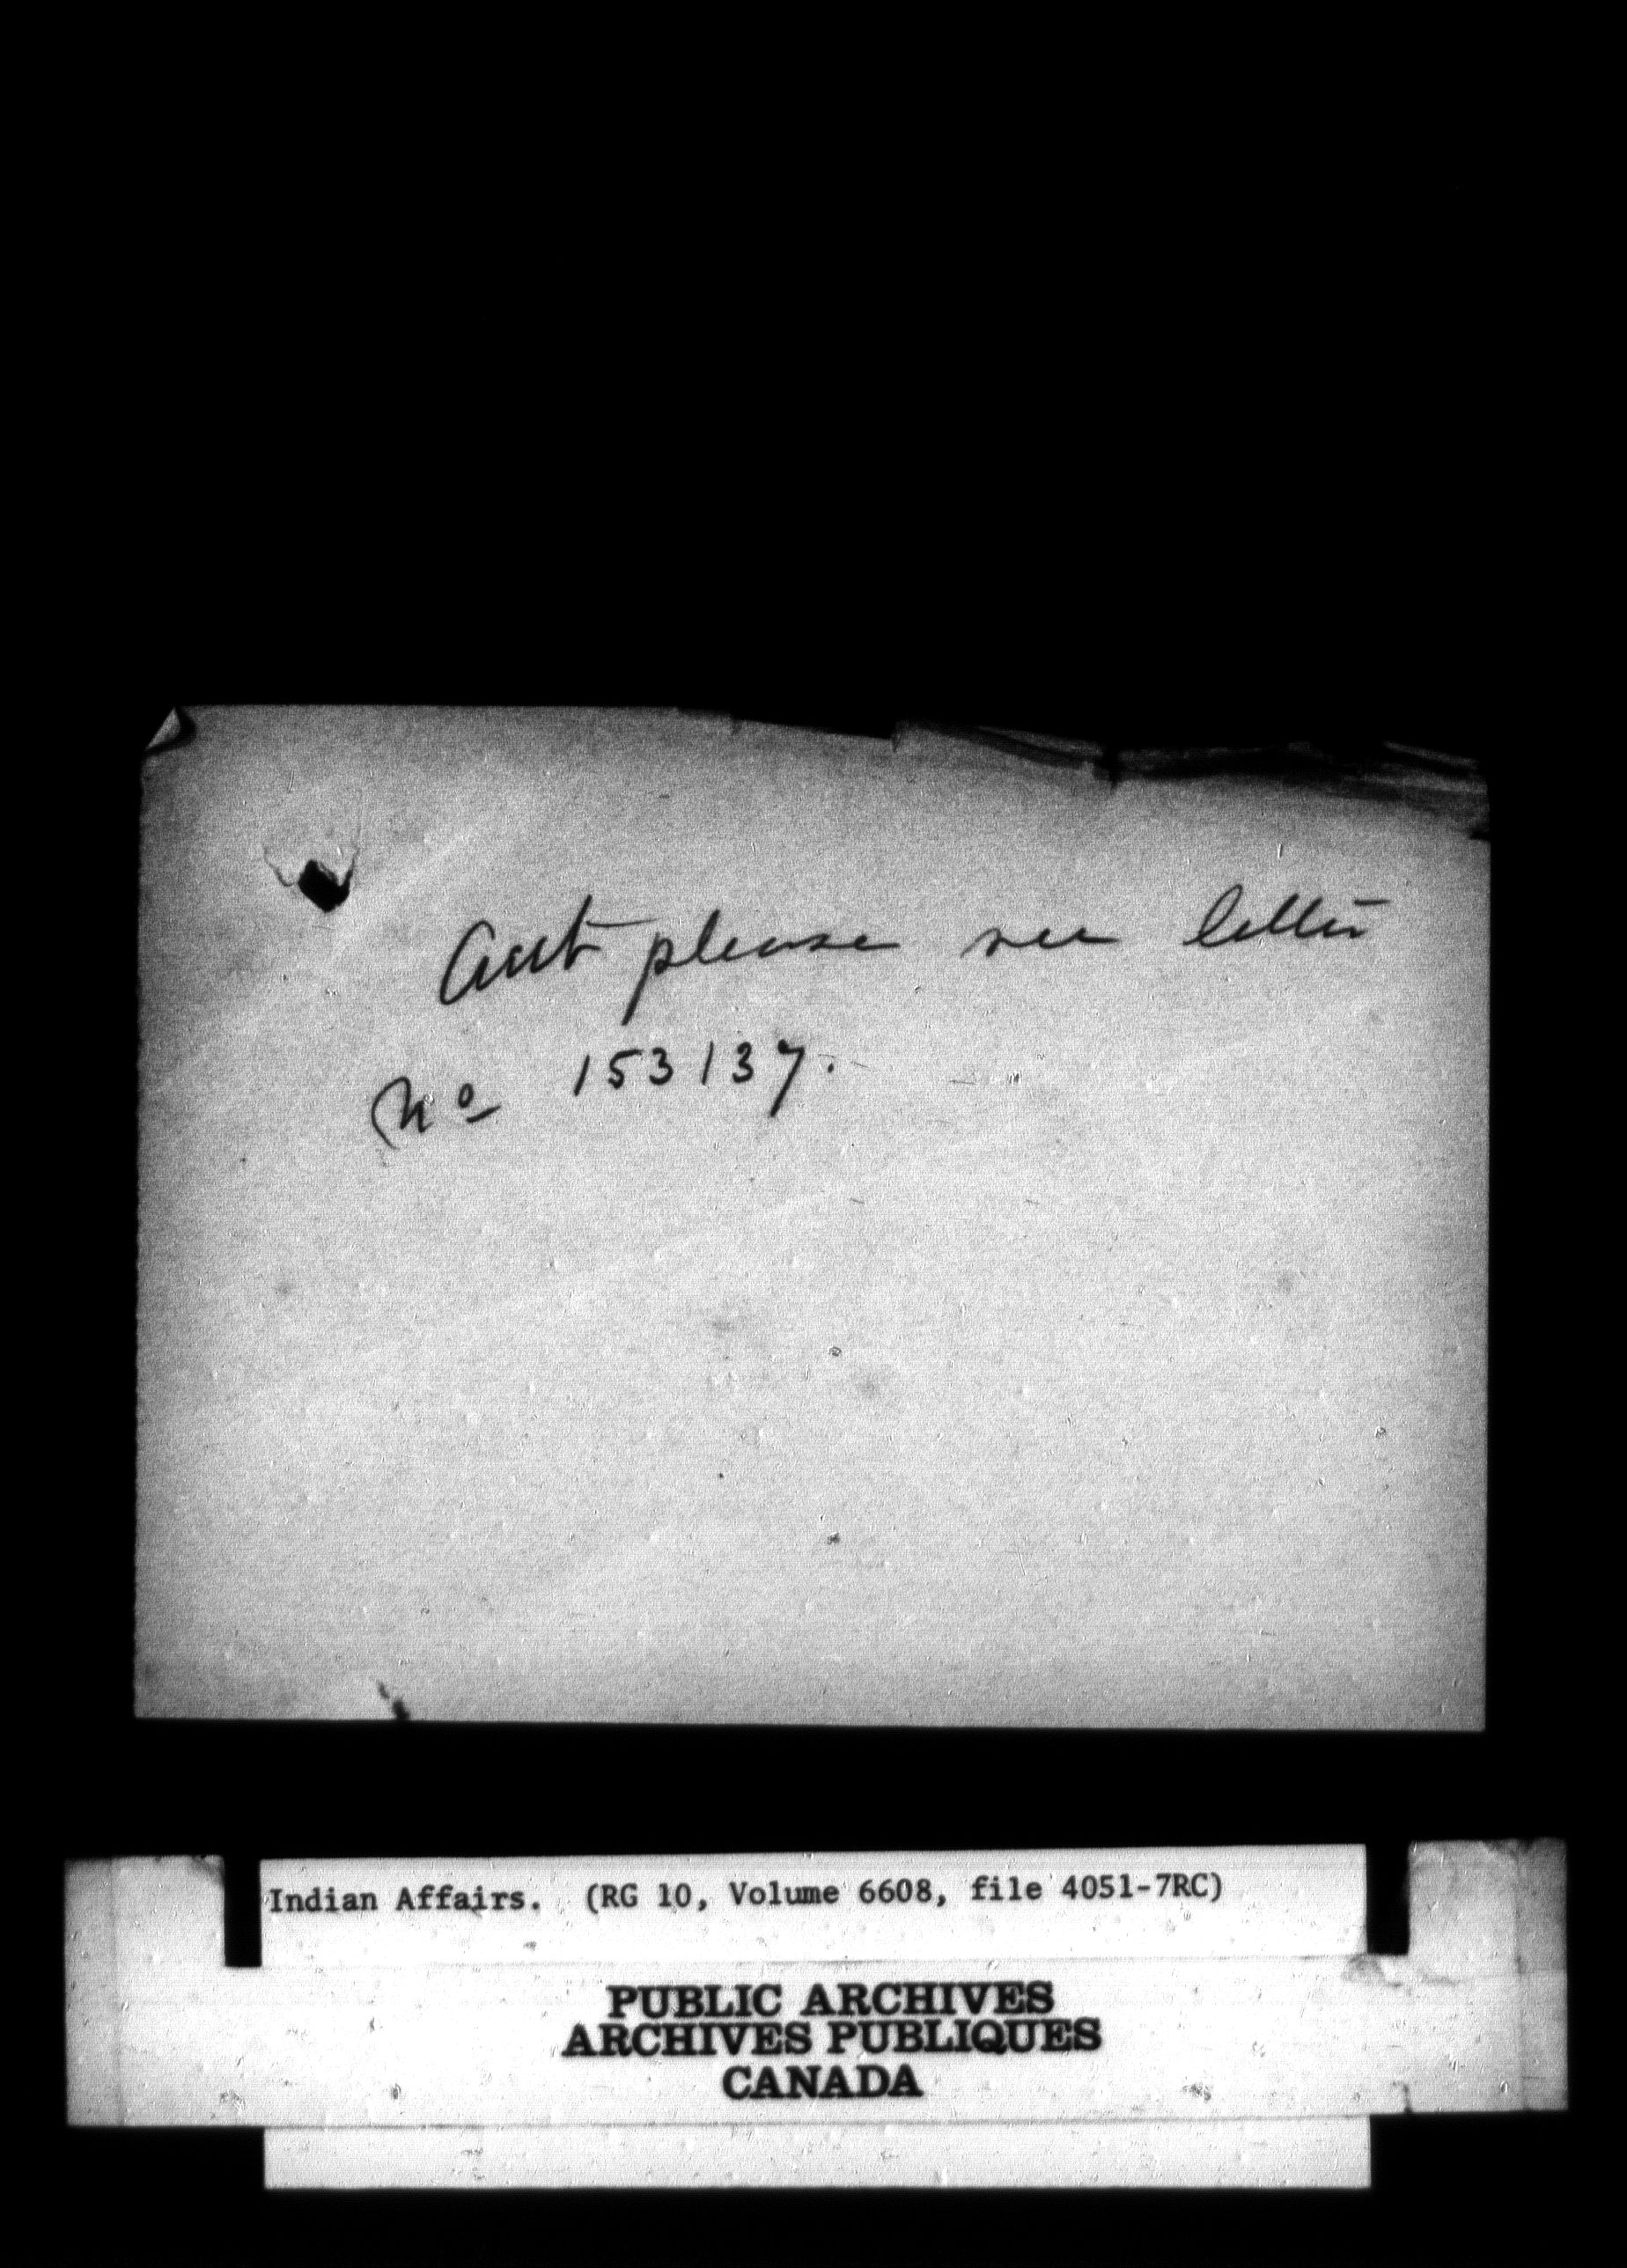 please see letter
No 153137.
Indian Affairs. (RG 10, Volume 6608, file 4051-7RC)
PUBLIC ARCHIVES
ARCHIVES PUBLIQUES
CANADA